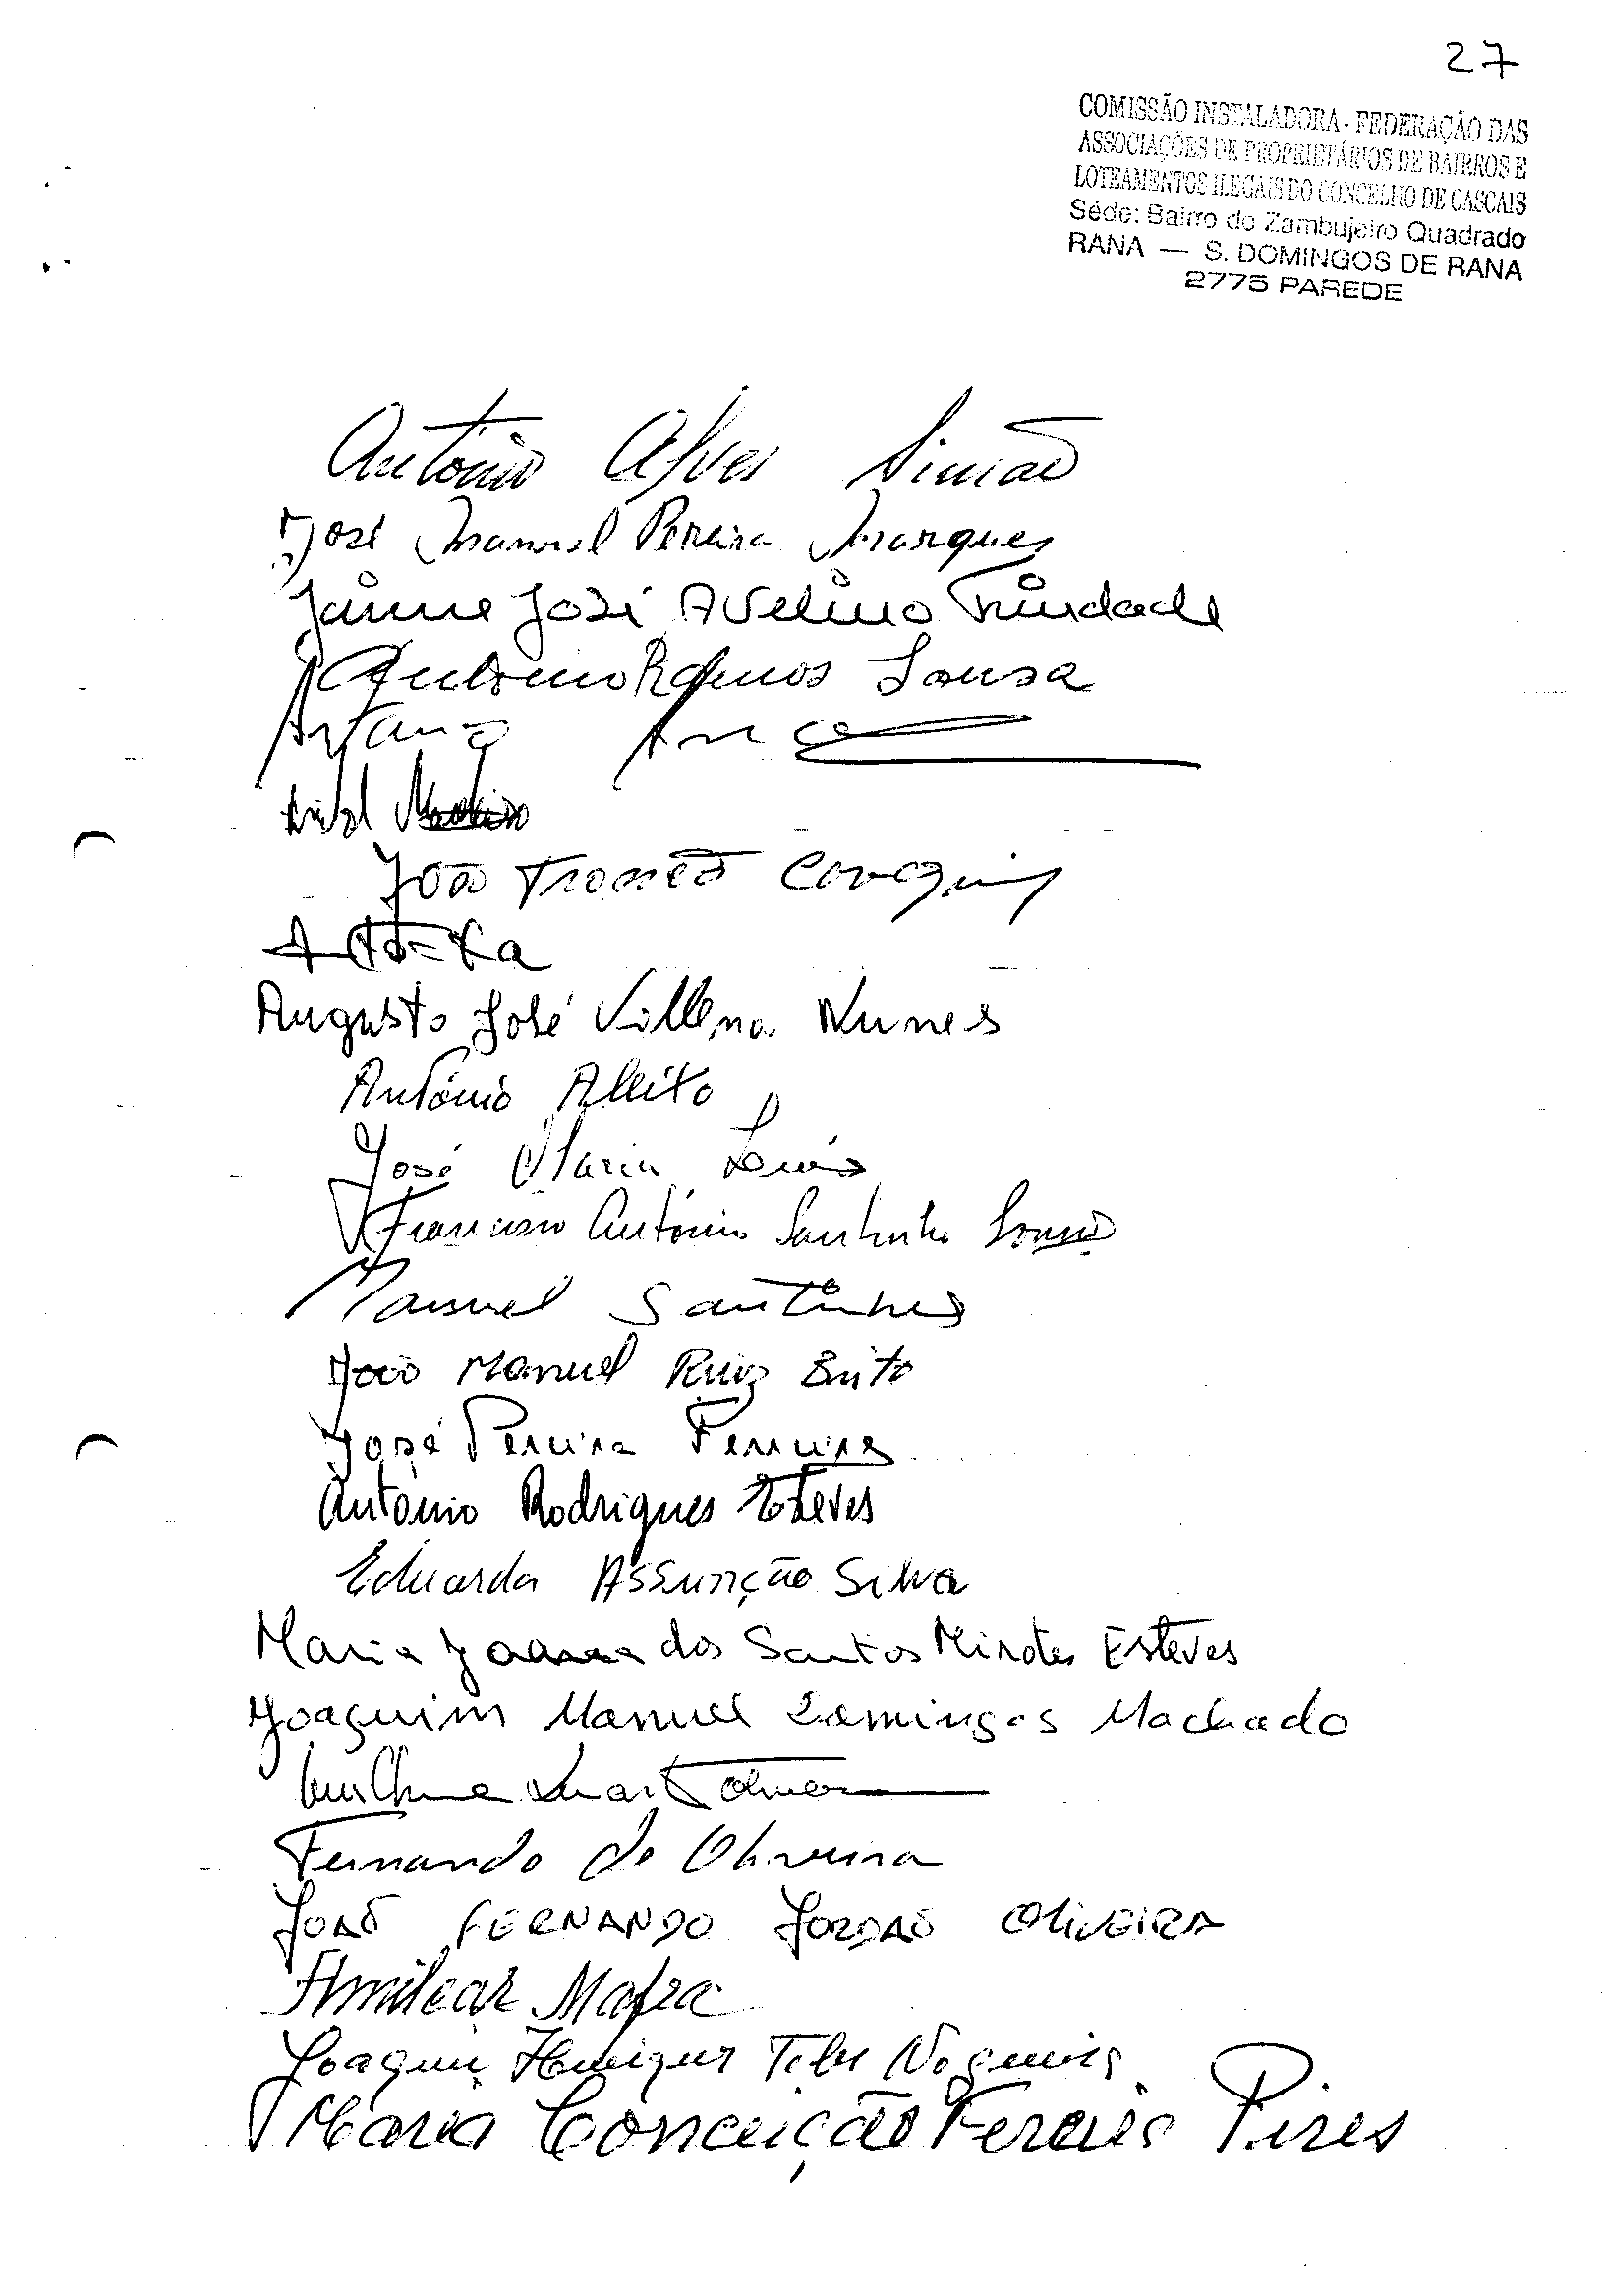 27
COMISSÃO INSTALADORA - FEDERAÇÃO DAS
ASSOCIAÇÕES DE PROPRIETÁRIOS DE BAIRROS E
LOTEAMENTOS ILEGAIS DO CONCELHO DE CASCAIS
Séde: Bairro do Zambujeiro Quadrado
RANA — S. DOMINGOS DE RANA
2775 PAREDE
António Alves Simão
José Manuel Pereira Marques
Jaime José Avelino Trindade
António Ramos Sousa
João
Augusto José Villena Nunes
António Alleito
José Maria
Francisco António Santinho
Manuel Santinho
João Manuel Ruiz Brito
José Pereira Ferreira
António Rodrigues Esteves
Eduarda Assunção Silva
Maria dos Santos Mirotes Esteves
Joaquim Manuel Domingos Machado
Guilherme Duarte
Fernando de Oliveira
JOÃO FERNANDO JORDÃO OLIVEIRA
Amilcar Mafra
Joaquim Henrique Teles Nogueira
Maria Conceição Fereira Pires